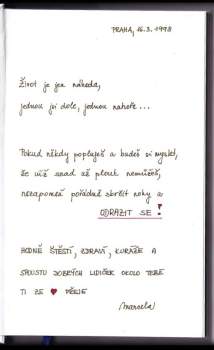 PRAHA, 16.3. 1998
Život je jen náhoda,
jednou jsi dole, jednou nahoře ...
Pokud někdy poplyneš a budeš si myslet,
že už snad se plout nemůžeš,
nezapomeň pořádně skrčit nohy a
ODRAZIT SE!
HODNĚ ŠTĚSTÍ, ZDRAVÍ, KURÁŽE A
SPOUSTU DOBRÝCH LIDIČEK OKOLO TEBE
TI ZE ♥ PŘEJE
Marcela